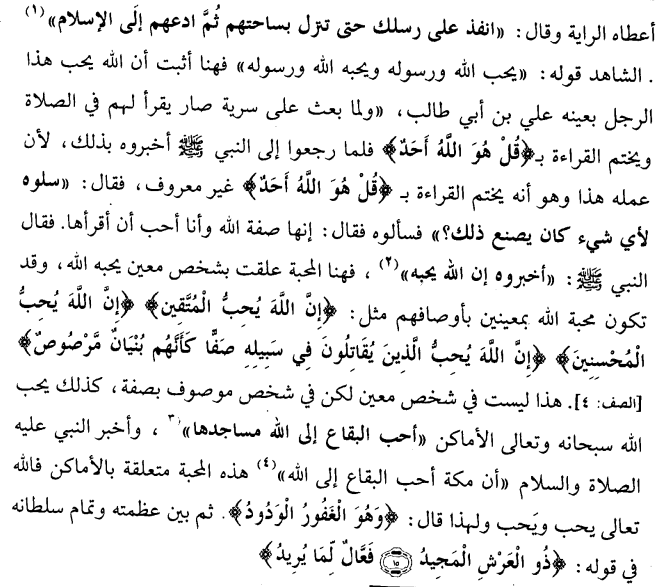 أعطاه الراية وقال: «انفذ على رسلك حتى تنزل بساحتهم ثُمَّ ادعهم إلَى الإسلام»(١)
. الشاهد قوله: «يحب الله ورسوله ويحبه الله ورسوله» فهنا أثبت أن الله يحب هذا
الرجل بعينه علي بن أبي طالب، «ولما بعث على سرية صار يقرأ لهم في الصلاة
ويختم القراءة بـ﴿قُلْ هُوَ اللَّهُ أَحَدٌ﴾ فلما رجعوا إلى النبي ﷺ أخبروه بذلك، لأن
عمله هذا وهو أنه يختم القراءة بـ ﴿قُلْ هُوَ اللَّهُ أَحَدٌ﴾ غير معروف، فقال: «سلوه
لأي شيء كان يصنع ذلك؟» فسألوه فقال: إنها صفة الله وأنا أحب أن أقرأها. فقال
النبي ﷺ: «أخبروه إن الله يحبه»(٢)، فهنا المحبة علقت بشخص معين يحبه الله، وقد
تكون محبة الله بمعينين بأوصافهم مثل: ﴿إِنَّ اللَّهَ يُحِبُّ الْمُتَّقِين﴾ ﴿إِنَّ اللَّهَ يُحِبُّ
الْمُحْسِنِينَ﴾ ﴿إِنَّ اللَّهَ يُحِبُّ الَّذِينَ يُقَاتِلُونَ فِي سَبِيلِهِ صَفًّا كَأَنَّهُم بُنْيَانٌ مَّرْصُوصٌ﴾
[الصف: ٤]. هذا ليست في شخص معين لكن في شخص موصوف بصفة، كذلك يحب
الله سبحانه وتعالى الأماكن «أحب البقاع إلى الله مساجدها»٣، وأخبر النبي عليه
الصلاة والسلام «أن مكة أحب البقاع إلى الله»(٤) هذه المحبة متعلقة بالأماكن فالله
تعالى يحب ويَحب ولهذا قال: ﴿وَهُوَ الْغَفُورُ الْوَدُودُ﴾. ثم بين عظمته وتمام سلطانه
في قوله: ﴿ذُو الْعَرْشِ الْمَجِيدُ ١٥ فَعَّالٌ لِّمَا يُرِيدُ﴾